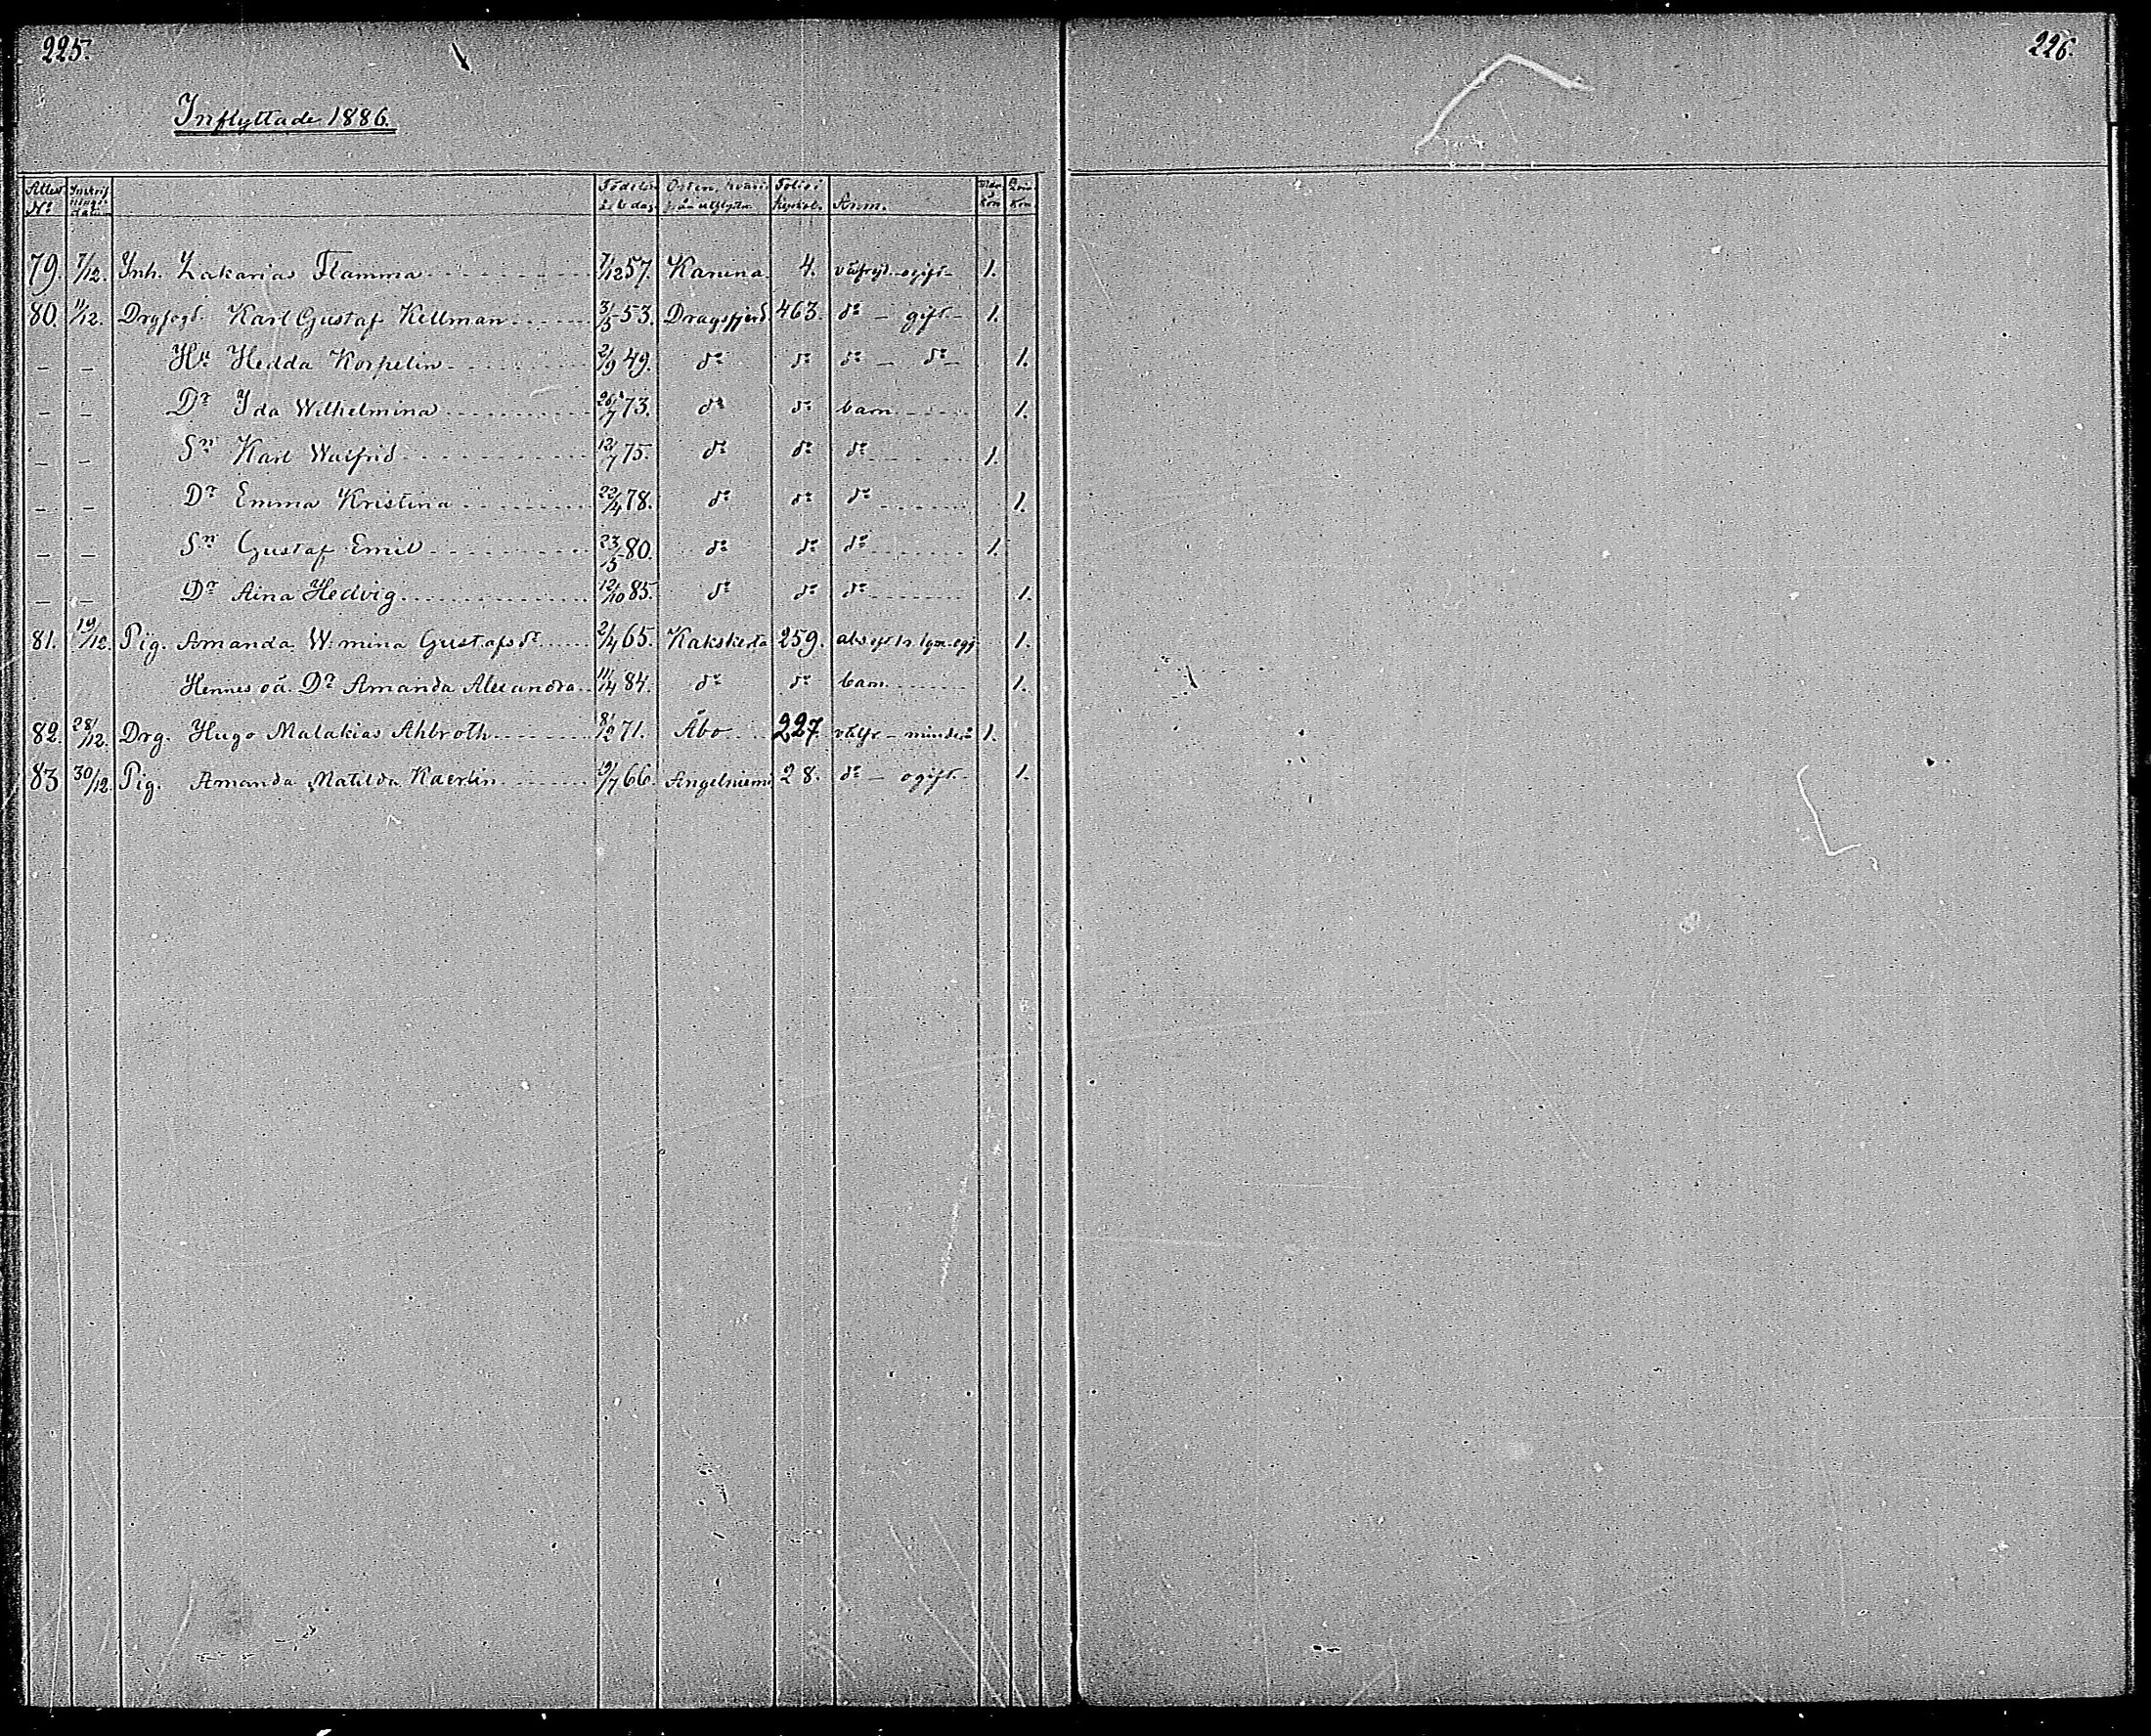 225.
226.
Inflyttade 1886.
Attest Nº Inskrifnings datum Födelse år & dag Orten, hvarifrån utflyttn. Folio i kyrkob. Anm. Man kön Qvin kön
79. 7/12. Inh. Zakarias Flamma 7/12 57. Karuna 4. välfrejd. ogift 1.
80. 11/12. Drgfogd. Karl Gustaf Kellman 3/5 53. Dragsfjerd 463. dº gift 1.
– – Hu Hedda Korpelin 2/9 49. dº dº dº – dº 1.
– – Dr Ida Wilhelmina 26/7 73. dº dº barn 1.
– – Sn Karl Walfrid 12/7 75. dº dº dº 1.
– – Dr Emma Kristina 22/4 78. dº dº dº 1.
– – Sn Gustaf Emil 23/5 80. dº dº dº 1.
– – Dr Aina Hedvig 12/10 85. dº dº dº 1.
81. 19/12. Pig. Amanda W:mina Gustafsdr 2/4 65. Kakskerta 259. 1.
Hennes oä. Dr Amanda Alexandra 11/4 84. dº dº barn 1.
82. 28/12. Drg. Hugo Malakias Ahlroth 8/12 71. Åbo 227. välfr – minderå 1.
83 30/12. Pig. Amanda Matilda Kaerlin 9/7 66. Angelniemi 28. dº – ogift. 1.